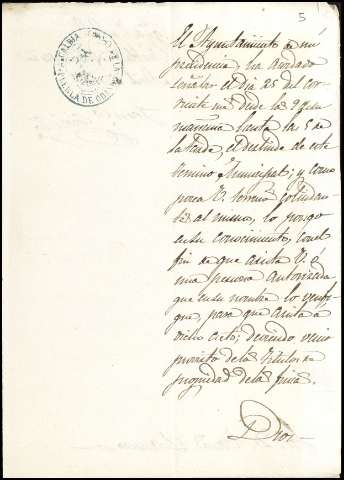 5
ALCALDIA
DE ORI
El Ayuntamiento de mi
presidencia ha acordado
señalar el dia 25 del cor-
riente mes desde las 9 de la
mañana hasta las 5 de
la tarde, el deslinde de este
termino Municipal; y como
posea V. terrenos colindan-
tes al mismo, lo pongo
en su conocimiento, con el
fin de que asista V. ó
una persona autorizada
que en su nombre lo verifi-
que, para que asista á
dicho acto; debiendo venir
provisto de los titulos de
propiedad de la finca.
Dios